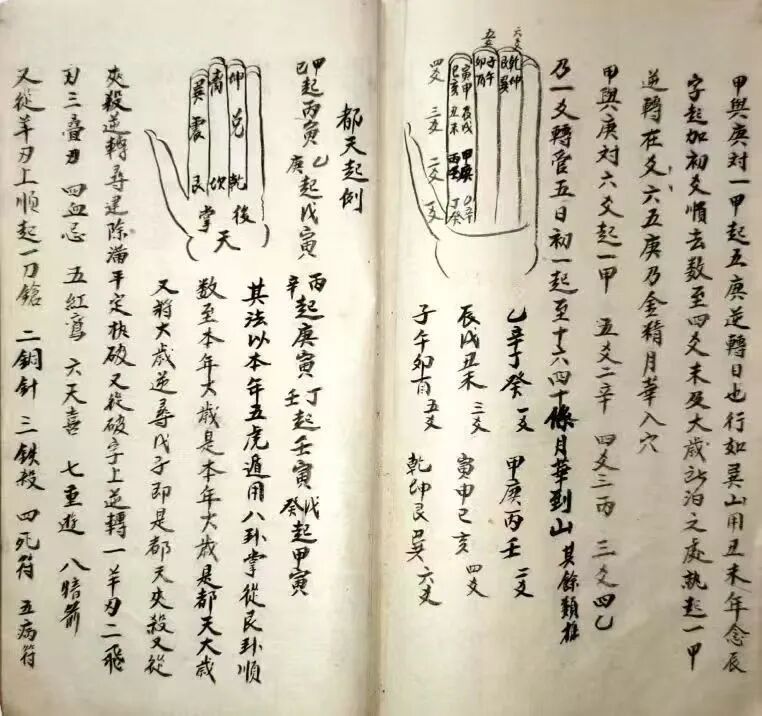 甲與庚対一甲起五庚逆轉日也行如巽山用丑未年念辰
字起加初爻順去数至四爻未及大歳所泊之處就起一甲
逆轉在爻六五庚乃金精月華入穴
甲與庚対六爻起一甲 五爻二辛 四爻三丙 三爻四乙
乃一爻轉管五日初一起至十六四十條月華到山 其餘類推
乙辛丁癸 一爻 甲庚丙壬 二爻
辰戌丑未 三爻 寅申巳亥 四爻
子午卯酉 五爻 乾坤艮巽 六爻
六爻 乾坤艮巽
五爻 子午卯酉
四爻 寅申巳亥
三爻 辰戌丑未
二爻 甲庚丙壬
一爻 乙辛丁癸
都天起例
甲己起丙寅 乙庚起戊寅 丙辛起庚寅 丁壬起壬寅 戊癸起甲寅
其法以本年五虎遁用八卦掌從艮卦順
数至本年大歳是本年大歳是都天大歳
又將大歳逆尋戊子即是都天夾殺又從
夾殺逆轉尋建除滿平定执破又從破字上逆轉一羊刃二飛
刃三叠刃 四血忌 五紅鸞 六天喜 七重遊 八暗箭
又從羊刃上順起一刀鎗 二銅針 三鉄投 四死符 五病符
坤 兌 乾
離 坎
巽 震 艮
後天掌